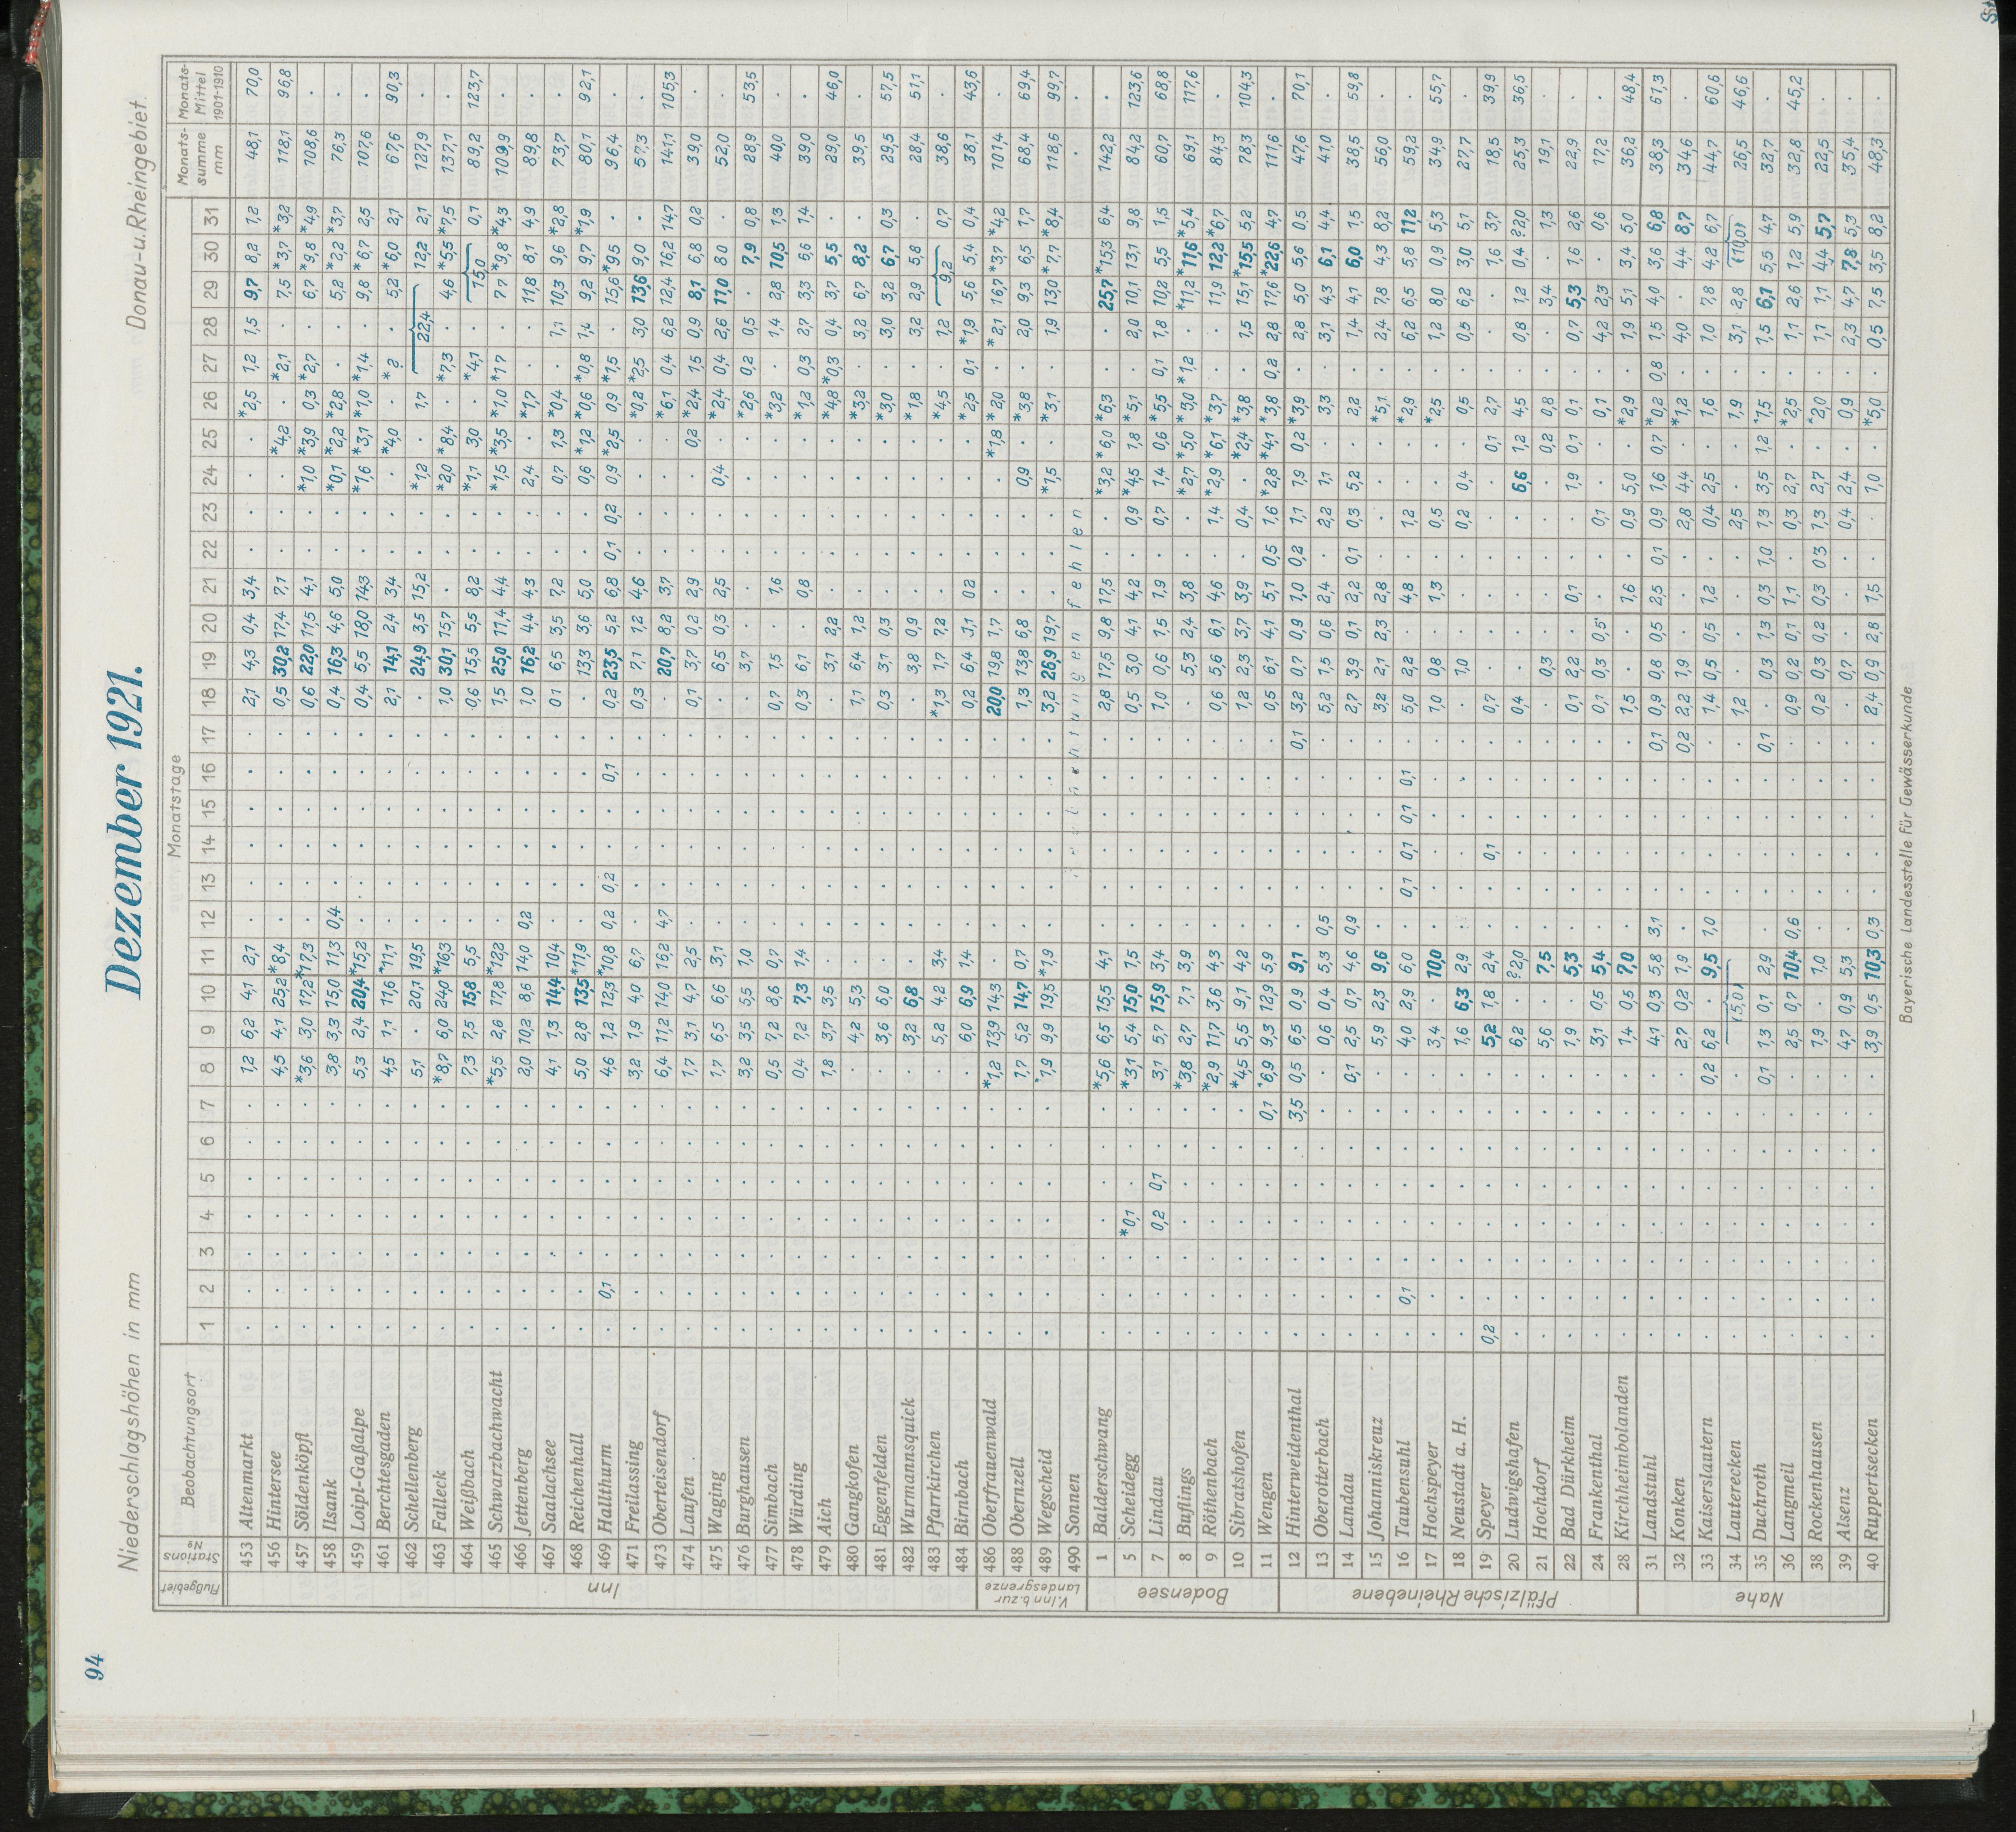 94
Niederschlagshöhen in mm
Dezember 1921.
Donau- u. Rheingebiet.
Flußgebiet Stations № Beobachtungsort Monatstage Monats-summe mm Monats-Mittel 1901-1910
1 2 3 4 5 6 7 8 9 10 11 12 13 14 15 16 17 18 19 20 21 22 23 24 25 26 27 28 29 30 31
Inn
453 Altenmarkt . . . . . . . 1,2 6,2 4,1 2,1 . . . . . . 2,1 4,3 0,4 3,4 . . . . *2,5 1,2 1,5 9,7 8,2 1,2 48,1 70,0
456 Hintersee . . . . . . . 4,5 4,1 25,2 *8,4 . . . . . . 0,5 30,2 17,4 7,1 . . . *4,2 . *2,1 . 7,5 *3,7 *3,2 118,1 96,8
457 Söldenköpfl . . . . . . . *3,6 3,0 17,2 *17,3 . . . . . . 0,6 22,0 11,5 4,1 . . *1,0 *3,9 0,3 *2,7 . 6,7 *9,8 *4,9 108,6 .
458 Ilsank . . . . . . . 3,8 3,3 15,0 11,3 0,4 . . . . . 0,4 16,3 4,6 5,0 . . *0,1 *2,2 *2,8 . . 5,2 *2,2 *3,7 76,3 .
459 Loipl-Gaßalpe . . . . . . . 5,3 2,4 20,4 *15,2 . . . . . . 0,4 5,5 18,0 14,3 . . *1,6 *3,1 *1,0 *1,4 . 9,8 *6,7 2,5 107,6 .
461 Berchtesgaden . . . . . . . 4,5 1,1 11,6 *11,1 . . . . . . 2,1 14,1 2,4 3,4 . . . *4,0 . *? . 5,2 *6,0 2,1 67,6 90,3
462 Schellenberg . . . . . . . 5,1 . 20,1 19,5 . . . . . . . 24,9 3,5 15,2 . . *1,2 . 1,7 22,4 12,2 2,1 127,9 .
463 Falleck . . . . . . . *8,7 6,0 24,0 *16,3 . . . . . . 1,0 30,1 15,7 . . . *2,0 *8,4 . *7,3 . 4,6 *5,5 *7,5 137,1 .
464 Weißbach . . . . . . . 7,3 7,5 15,8 5,5 . . . . . . 0,6 15,5 5,5 8,2 . . *1,1 3,0 . *4,1 . 15,0 0,1 89,2 123,7
465 Schwarzbachwacht . . . . . . . *5,5 2,6 17,8 *12,2 . . . . . . 1,5 25,0 11,4 4,4 . . *1,5 *3,5 *1,0 *1,7 . 7,7 *9,8 *4,3 109,9 .
466 Jettenberg . . . . . . . 2,0 10,2 8,6 14,0 0,2 . . . . . 1,0 16,2 4,4 4,3 . . 2,4 . *1,7 . . 11,8 8,1 4,9 89,8 .
467 Saalachsee . . . . . . . 4,1 1,3 14,4 10,4 . . . . . . 0,1 6,5 3,5 7,2 . . 0,7 1,3 *0,4 . 1,1 10,3 9,6 *2,8 73,7 .
468 Reichenhall . . . . . . . 5,0 2,8 13,5 *11,9 . . . . . . . 13,3 3,6 5,0 . . 0,6 *1,2 *0,6 *0,8 1,4 9,2 9,7 *1,9 80,1 92,1
469 Hallthurm . 0,1 . . . . . 4,6 1,2 12,3 *10,8 0,2 0,2 . . 0,1 . 0,2 23,5 5,2 6,8 0,1 0,2 0,9 *2,5 0,9 *1,5 . 15,6 *9,5 . 96,4 .
471 Freilassing . . . . . . . 3,2 1,9 4,0 6,7 . . . . . . 0,3 7,1 1,2 4,6 . . . . *0,2 *2,5 3,0 13,6 9,0 . 57,3 .
473 Oberteisendorf . . . . . . . 6,4 11,2 14,0 16,2 4,7 . . . . . . 20,7 8,2 3,7 . . . . *6,1 0,4 6,2 12,4 16,2 14,7 141,1 105,3
474 Laufen . . . . . . . 1,7 3,1 4,7 2,5 . . . . . . 0,1 3,7 0,2 2,9 . . . 0,2 *2,4 1,5 0,9 8,1 6,8 0,2 39,0 .
475 Waging . . . . . . . 1,7 6,5 6,6 3,1 . . . . . . . 6,5 0,3 2,5 . . 0,4 . *2,4 0,4 2,6 11,0 8,0 . 52,0 .
476 Burghausen . . . . . . . 3,2 3,5 5,5 1,0 . . . . . . . 3,7 . . . . . . *2,6 0,2 0,5 . 7,9 0,8 28,9 53,5
477 Simbach . . . . . . . 0,5 7,2 8,6 0,7 . . . . . . 0,7 1,5 . 1,6 . . . . *3,2 . 1,4 2,8 10,5 1,3 40,0 .
478 Würding . . . . . . . 0,4 7,2 7,3 1,4 . . . . . . 0,3 6,1 . 0,8 . . . . *1,2 0,3 2,7 3,3 6,6 1,4 39,0 .
479 Aich . . . . . . . 1,8 3,7 3,5 . . . . . . . . 3,1 2,2 . . . . . *4,8 *0,3 0,4 3,7 5,5 . 29,0 46,0
480 Gangkofen . . . . . . . . 4,2 5,3 . . . . . . . 1,1 6,4 1,2 . . . . . *3,2 . 3,2 6,7 8,2 . 39,5 .
481 Eggenfelden . . . . . . . . 3,6 6,0 . . . . . . . 0,3 3,1 0,3 . . . . . *3,0 . 3,0 3,2 6,7 0,3 29,5 57,5
482 Wurmannsquick . . . . . . . . 3,2 6,8 . . . . . . . . 3,8 0,9 . . . . . *1,8 . 3,2 2,9 5,8 . 28,4 51,1
483 Pfarrkirchen . . . . . . . . 5,2 4,2 3,4 . . . . . . *1,3 1,7 7,2 . . . . . *4,5 . 1,2 9,2 0,7 38,6 .
484 Birnbach . . . . . . . . 6,0 6,9 1,4 . . . . . . 0,2 6,4 3,1 0,2 . . . . *2,5 0,1 *1,9 5,6 5,4 0,4 38,1 43,6
V. Inn b. zur Landesgrenze
486 Oberfrauenwald . . . . . . . *1,2 13,9 14,3 . . . . . . . 20,0 19,8 1,7 . . . . *1,8 *2,0 . *2,1 16,7 *3,7 *4,2 101,4 .
488 Obernzell . . . . . . . 1,7 5,2 14,7 0,7 . . . . . . 1,3 13,8 6,8 . . . 0,9 . *3,8 . 2,0 9,3 6,5 1,7 68,4 69,4
489 Wegscheid . . . . . . . *1,9 9,9 19,5 *1,9 . . . . . . 3,2 26,9 19,7 . . . *1,5 . *3,1 . 1,9 13,0 *7,7 *8,4 118,6 99,7
490 Sonnen fehlen . .
Bodensee
1 Balderschwang . . . . . . . *5,6 6,5 15,5 4,1 . . . . . . 2,8 17,5 9,8 17,5 . . *3,2 *6,0 *6,3 . . 25,7 *15,3 6,4 142,2 .
5 Scheidegg . . . *0,1 . . . *3,1 5,4 15,0 1,5 . . . . . . 0,5 3,0 4,1 4,2 . 0,9 *4,5 1,8 *5,1 . 2,0 10,1 13,1 9,8 84,2 123,6
7 Lindau . . . 0,2 0,1 . . 3,1 5,7 15,9 3,4 . . . . . . 1,0 0,6 1,5 1,9 . 0,7 1,4 0,6 *5,5 0,1 1,8 10,2 5,5 1,5 60,7 68,8
8 Buflings . . . . . . . *3,8 2,7 7,1 3,9 . . . . . . . 5,3 2,4 3,8 . . *2,7 *5,0 *3,0 *1,2 . *11,2 *11,6 *5,4 69,1 117,6
9 Röthenbach . . . . . . . *2,9 11,7 3,6 4,3 . . . . . . 0,6 5,6 6,1 4,6 . 1,4 *2,9 *6,1 *3,7 . . 11,9 12,2 *6,7 84,3 .
10 Sibratshofen . . . . . . . *4,5 5,5 9,1 4,2 . . . . . . 1,2 2,3 3,7 3,9 . 0,4 . *2,4 *3,8 . 1,5 15,1 *15,5 5,2 78,3 104,3
11 Wengen . . . . . . 0,1 *6,9 9,3 12,9 5,9 . . . . . . 0,5 6,1 4,1 5,1 0,5 1,6 *2,8 *4,1 *3,8 0,2 2,8 17,6 *22,6 4,7 111,6 .
Pfälzische Rheinebene
12 Hinterweidenthal . . . . . . 3,5 0,5 6,5 0,9 9,1 . . . . . 0,1 3,2 0,7 0,9 1,0 0,2 1,1 1,9 0,2 *3,9 . 2,8 5,0 5,6 0,5 47,6 70,1
13 Oberotterbach . . . . . . . . 0,6 0,4 5,3 0,5 . . . . . 5,2 1,5 0,6 2,4 . 2,2 1,1 . 3,3 . 3,1 4,3 6,1 4,4 41,0 .
14 Landau . . . . . . . 0,1 2,5 0,7 4,6 0,9 . . . . . 2,7 3,9 0,1 2,2 0,1 0,3 5,2 . 2,2 . 1,4 4,1 6,0 1,5 38,5 59,8
15 Johanniskreuz . . . . . . . . 5,9 2,3 9,6 . . . . . . 3,2 2,1 2,3 2,8 . . . . *5,1 . 2,4 7,8 4,3 8,2 56,0 .
16 Taubensuhl . 0,1 . . . . . . 4,0 2,9 6,0 . 0,1 0,1 0,1 0,1 . 5,0 2,2 . 4,8 . 1,2 . . *2,9 . 6,2 6,5 5,8 11,2 59,2 .
17 Hochspeyer . . . . . . . . 3,4 . 10,0 . . . . . . 1,0 0,8 . 1,3 . 0,5 . . *2,5 . 1,2 8,0 0,9 5,3 34,9 55,7
18 Neustadt a. H. . . . . . . . . 1,6 6,3 2,9 . . . . . . . 1,0 . . . 0,2 0,4 . 0,5 . 0,5 6,2 3,0 5,1 27,7 .
19 Speyer 0,2 . . . . . . . 5,2 1,8 2,4 . . 0,1 . . . 0,7 . . . . . . 0,1 2,7 . . . 1,6 3,7 18,5 39,9
20 Ludwigshafen . . . . . . . . 6,2 . ?2,0 . . . . . . 0,4 . . . . . 6,6 1,2 4,5 . 0,8 1,2 0,4 ?2,0 25,3 36,5
21 Hochdorf . . . . . . . . 5,6 . 7,5 . . . . . . . 0,3 . . . . . 0,2 0,8 . . 3,4 . 1,3 19,1 .
22 Bad Dürkheim . . . . . . . . 1,9 . 5,3 . . . . . . 0,1 2,2 . 0,1 . . 1,9 0,1 0,1 . 0,7 5,3 1,6 2,6 22,9 .
24 Frankenthal . . . . . . . . 3,1 0,5 5,4 . . . . . . 0,1 0,3 0,5 . . 0,1 . . 0,1 . 4,2 2,3 . 0,6 17,2 .
28 Kirchheimbolanden . . . . . . . . 1,4 0,5 7,0 . . . . . . 1,5 . . 1,6 . 0,9 5,0 . *2,9 . 1,9 5,1 3,4 5,0 36,2 48,4
Nahe
31 Landstuhl . . . . . . . . 4,1 0,3 5,8 3,1 . . . . 0,1 0,9 0,8 0,5 2,5 0,1 0,9 1,6 0,7 *0,2 0,8 1,5 4,0 3,6 6,8 38,3 61,3
32 Konken . . . . . . . . 2,7 0,2 1,9 . . . . . 0,2 2,2 1,9 . . . 2,8 4,4 . *1,2 . 4,0 . 4,4 8,7 34,6 .
33 Kaiserslautern . . . . . . . 0,2 6,2 . 9,5 1,0 . . . . . 1,4 0,5 0,5 1,2 . 0,4 2,5 . 1,6 . 1,0 7,8 4,2 6,7 44,7 60,6
34 Lauterecken . . . . . . . . (5,0) . . . . . . 1,2 . . . . 2,5 . . 1,9 . 3,1 2,8 (10,0) 26,5 46,6
35 Duchroth . . . . . . . 0,1 1,3 0,1 2,9 . . . . . 0,1 . 0,3 1,3 0,3 1,0 1,3 3,5 1,2 *7,5 . 1,5 6,1 5,5 4,7 32,7 .
36 Langmeil . . . . . . . . 2,5 0,7 10,4 0,6 . . . . . 0,9 0,2 0,1 1,1 . 0,3 2,7 . *2,5 . 1,1 2,6 1,2 5,9 32,8 45,2
38 Rockenhausen . . . . . . . . 1,9 . 1,0 . . . . . . 0,2 0,3 0,2 0,3 0,3 1,3 2,7 . *2,0 . 1,1 1,1 4,4 5,7 22,5 .
39 Alsenz . . . . . . . . 4,7 0,9 5,3 . . . . . . . 0,7 . . . 0,4 2,4 . 0,9 . 2,3 4,7 7,8 5,3 35,4 .
40 Ruppertsecken . . . . . . . . 3,9 0,5 10,3 0,3 . . . . . 2,4 0,9 2,8 1,5 . . 1,0 . *5,0 . 0,5 7,5 3,5 8,2 48,3 .
Bayerische Landesstelle für Gewässerkunde